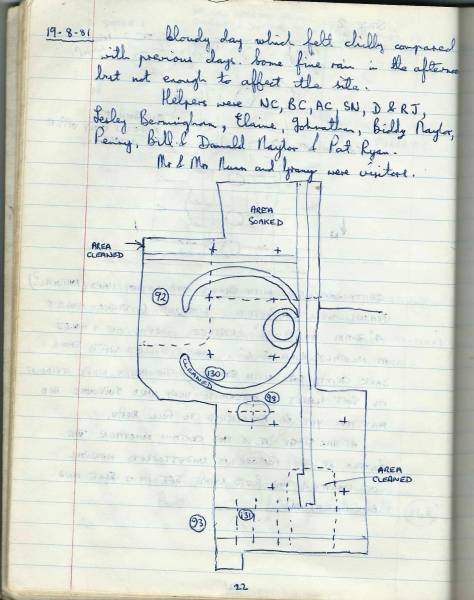 19-8-81
Cloudy day which felt chilly compared
with previous days. Some fine rain in the afternoon
but not enough to affect the site.
Helpers were NC, BC, AC, SN, D & RJ,
Lesley Bermingham, Elaine, Johnathan, Biddy Naylor,
Penny, Bill & Donald Naylor & Pat Ryan.
Mr & Mrs Nunn and Granny were visitors.
AREA
SOAKED
AREA
CLEANED
92
130
CLEANED
98
AREA
CLEANED
93
131
22